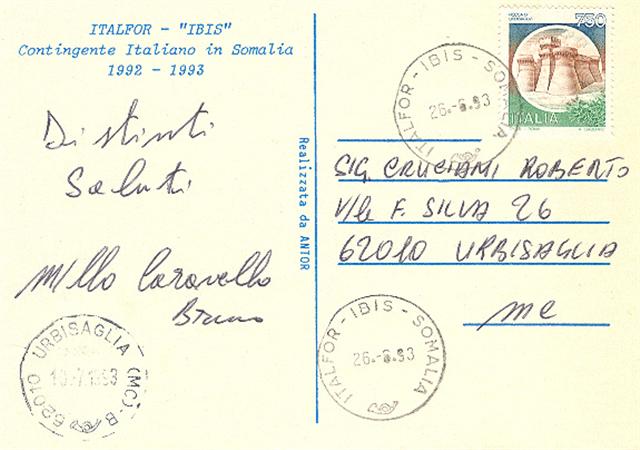 ITALFOR - "IBIS"
Contingente Italiano in Somalia
1992 - 1993
Distinti
Saluti
Millo Caravello
Bruno
URBISAGLIA (MC)-B
10.-7.1993
62010
Realizzata da ANTOR
ROCCA DI
URBISAGLIA
750
ITALIA
ITALFOR - IBIS - SOMALIA
26.-6.93
SIG. CRUCIANI ROBERTO
V/le F. SILVA 26
62010 URBISAGLIA
MC
ITALFOR - IBIS - SOMALIA
26.-6.93